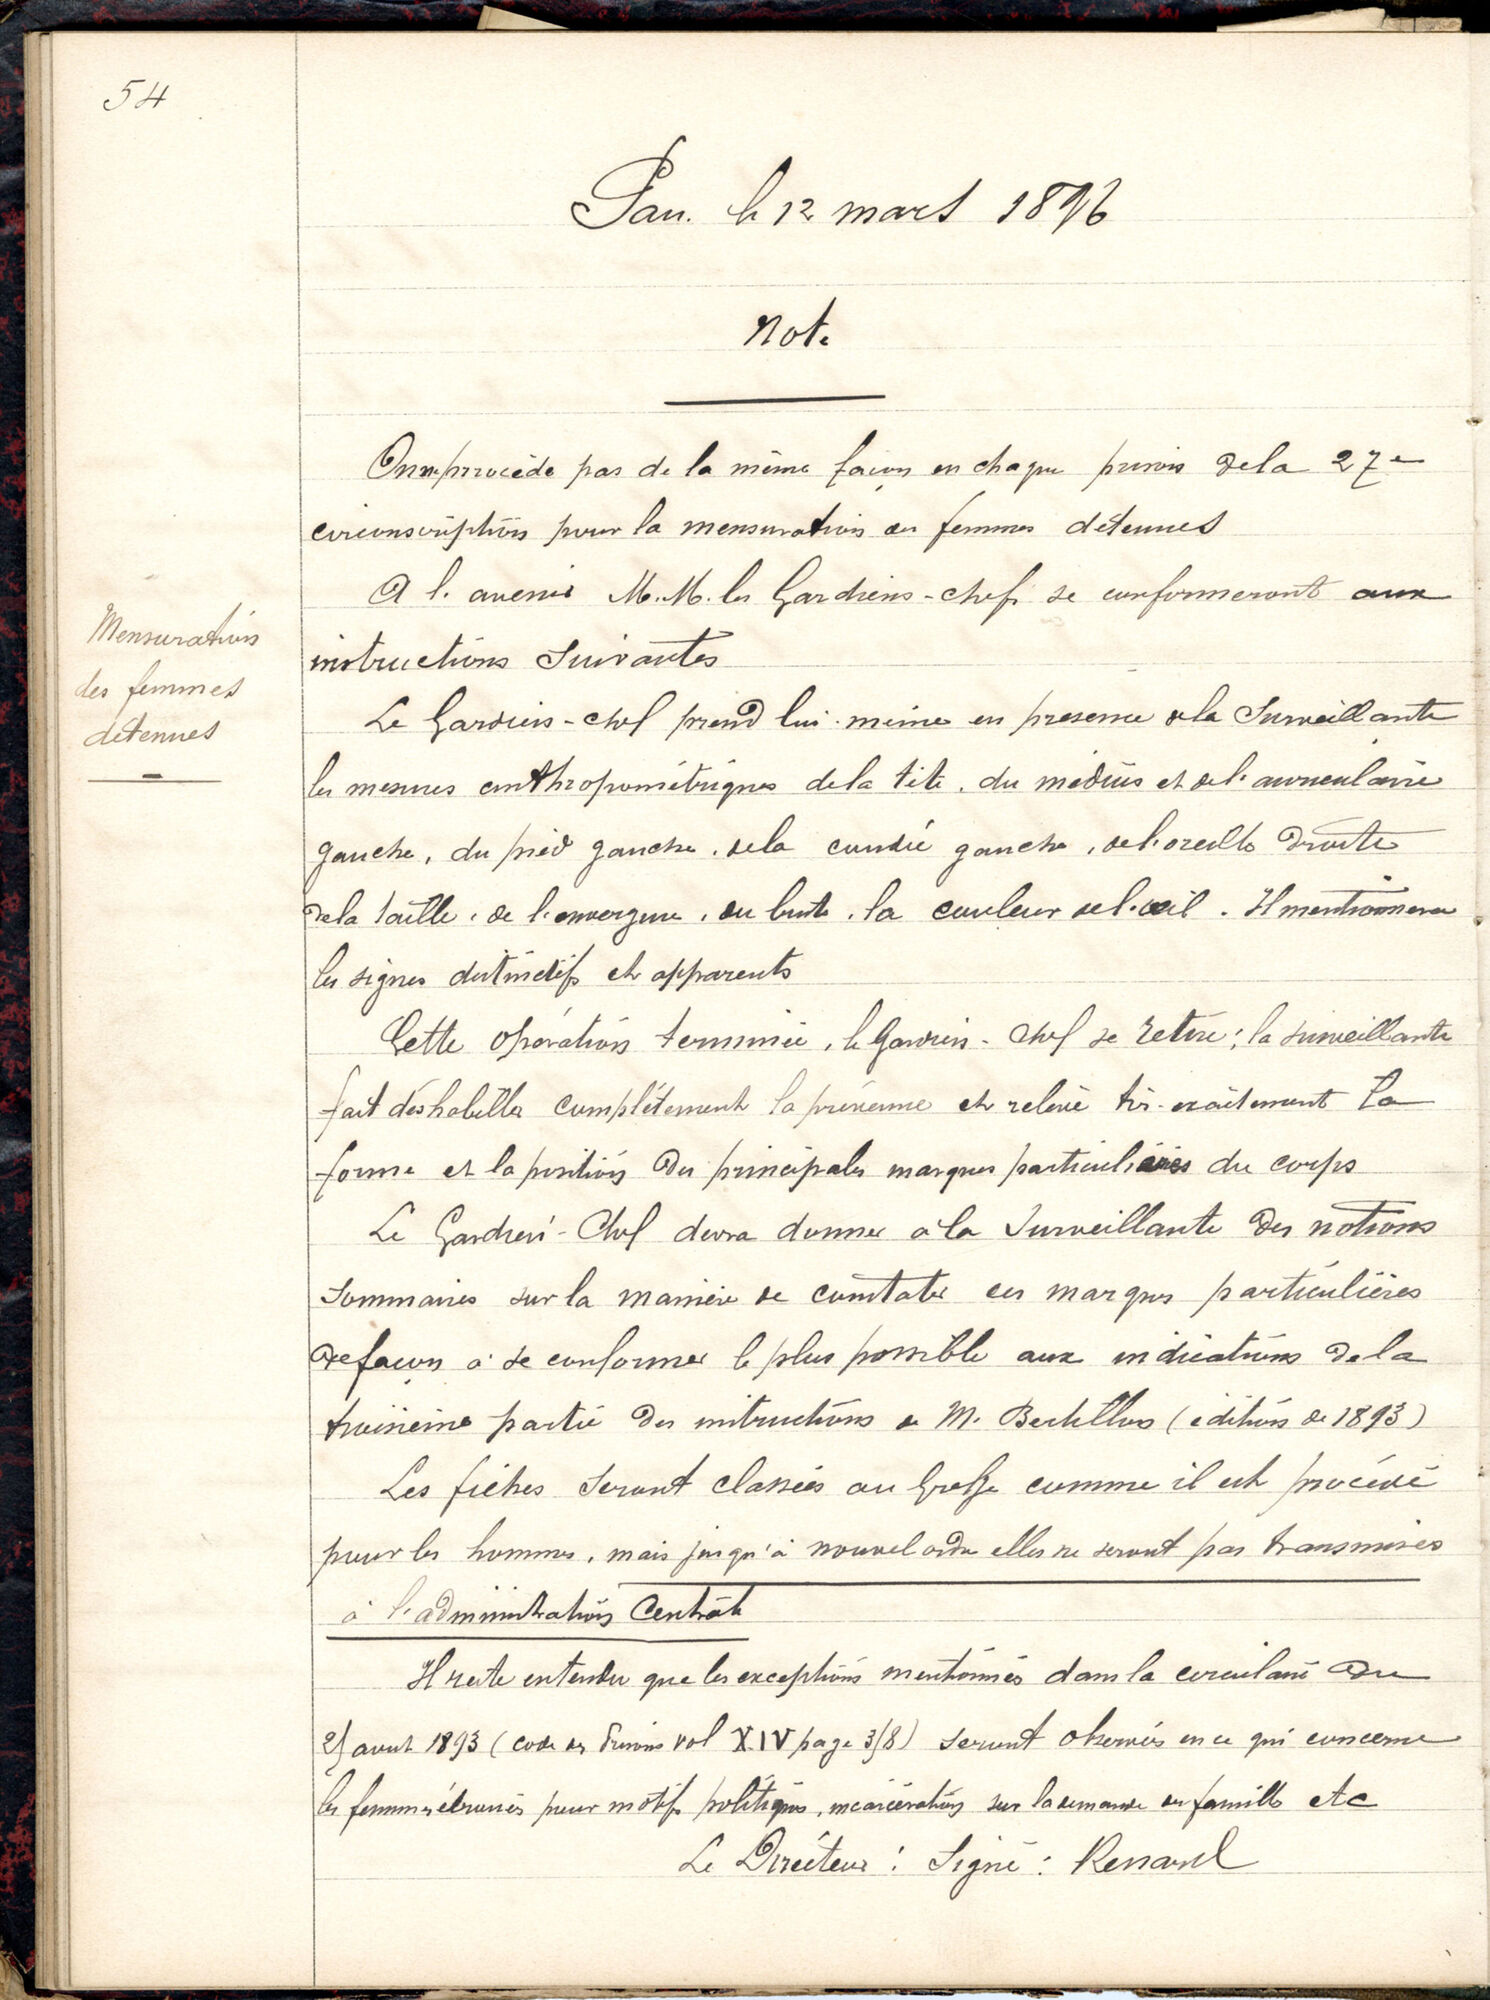 54
Pau. le 12 mars 1896
Note
On ne procède pas de la même façon en chaque prison de la 27e
circonscription pour la mensuration des femmes détenues
A l'avenir M.M. les Gardiens-chefs se conformeront aux
instructions suivantes
Mensuration
des femmes
détenues
Le Gardien-chef prend lui-même en présence de la Surveillante
les mesures anthropométriques de la tête, du médius et de l'auriculaire
gauche, du pied gauche, de la coudée gauche, de l'oreille droite
de la taille, de l'envergure, du buste, la couleur de l'œil. Il mentionnera
les signes distinctifs et apparents
Cette opération terminée, le Gardien-Chef se retire; la surveillante
fait déshabiller complètement la prévenue et relève très-exactement la
forme et la position des principales marques particulières du corps
Le Gardien-Chef devra donner à la Surveillante des notions
sommaires sur la manière de constater ces marques particulières
de façon à se conformer le plus possible aux indications de la
troisième partie des instructions de M. Bertillon (édition de 1893)
Les fiches seront classées au Greffe comme il est procédé
pour les hommes, mais jusqu'à nouvel ordre elles ne seront pas transmises
à l'administration Centrale
Il reste entendu que les exceptions mentionnées dans la circulaire du
août 1893 (Code des Prisons vol XIV page 318) seront observées en ce qui concerne
les femmes écrouées pour motifs politiques, incarcération sur la demande des familles etc
Le Directeur : Signé : Renard